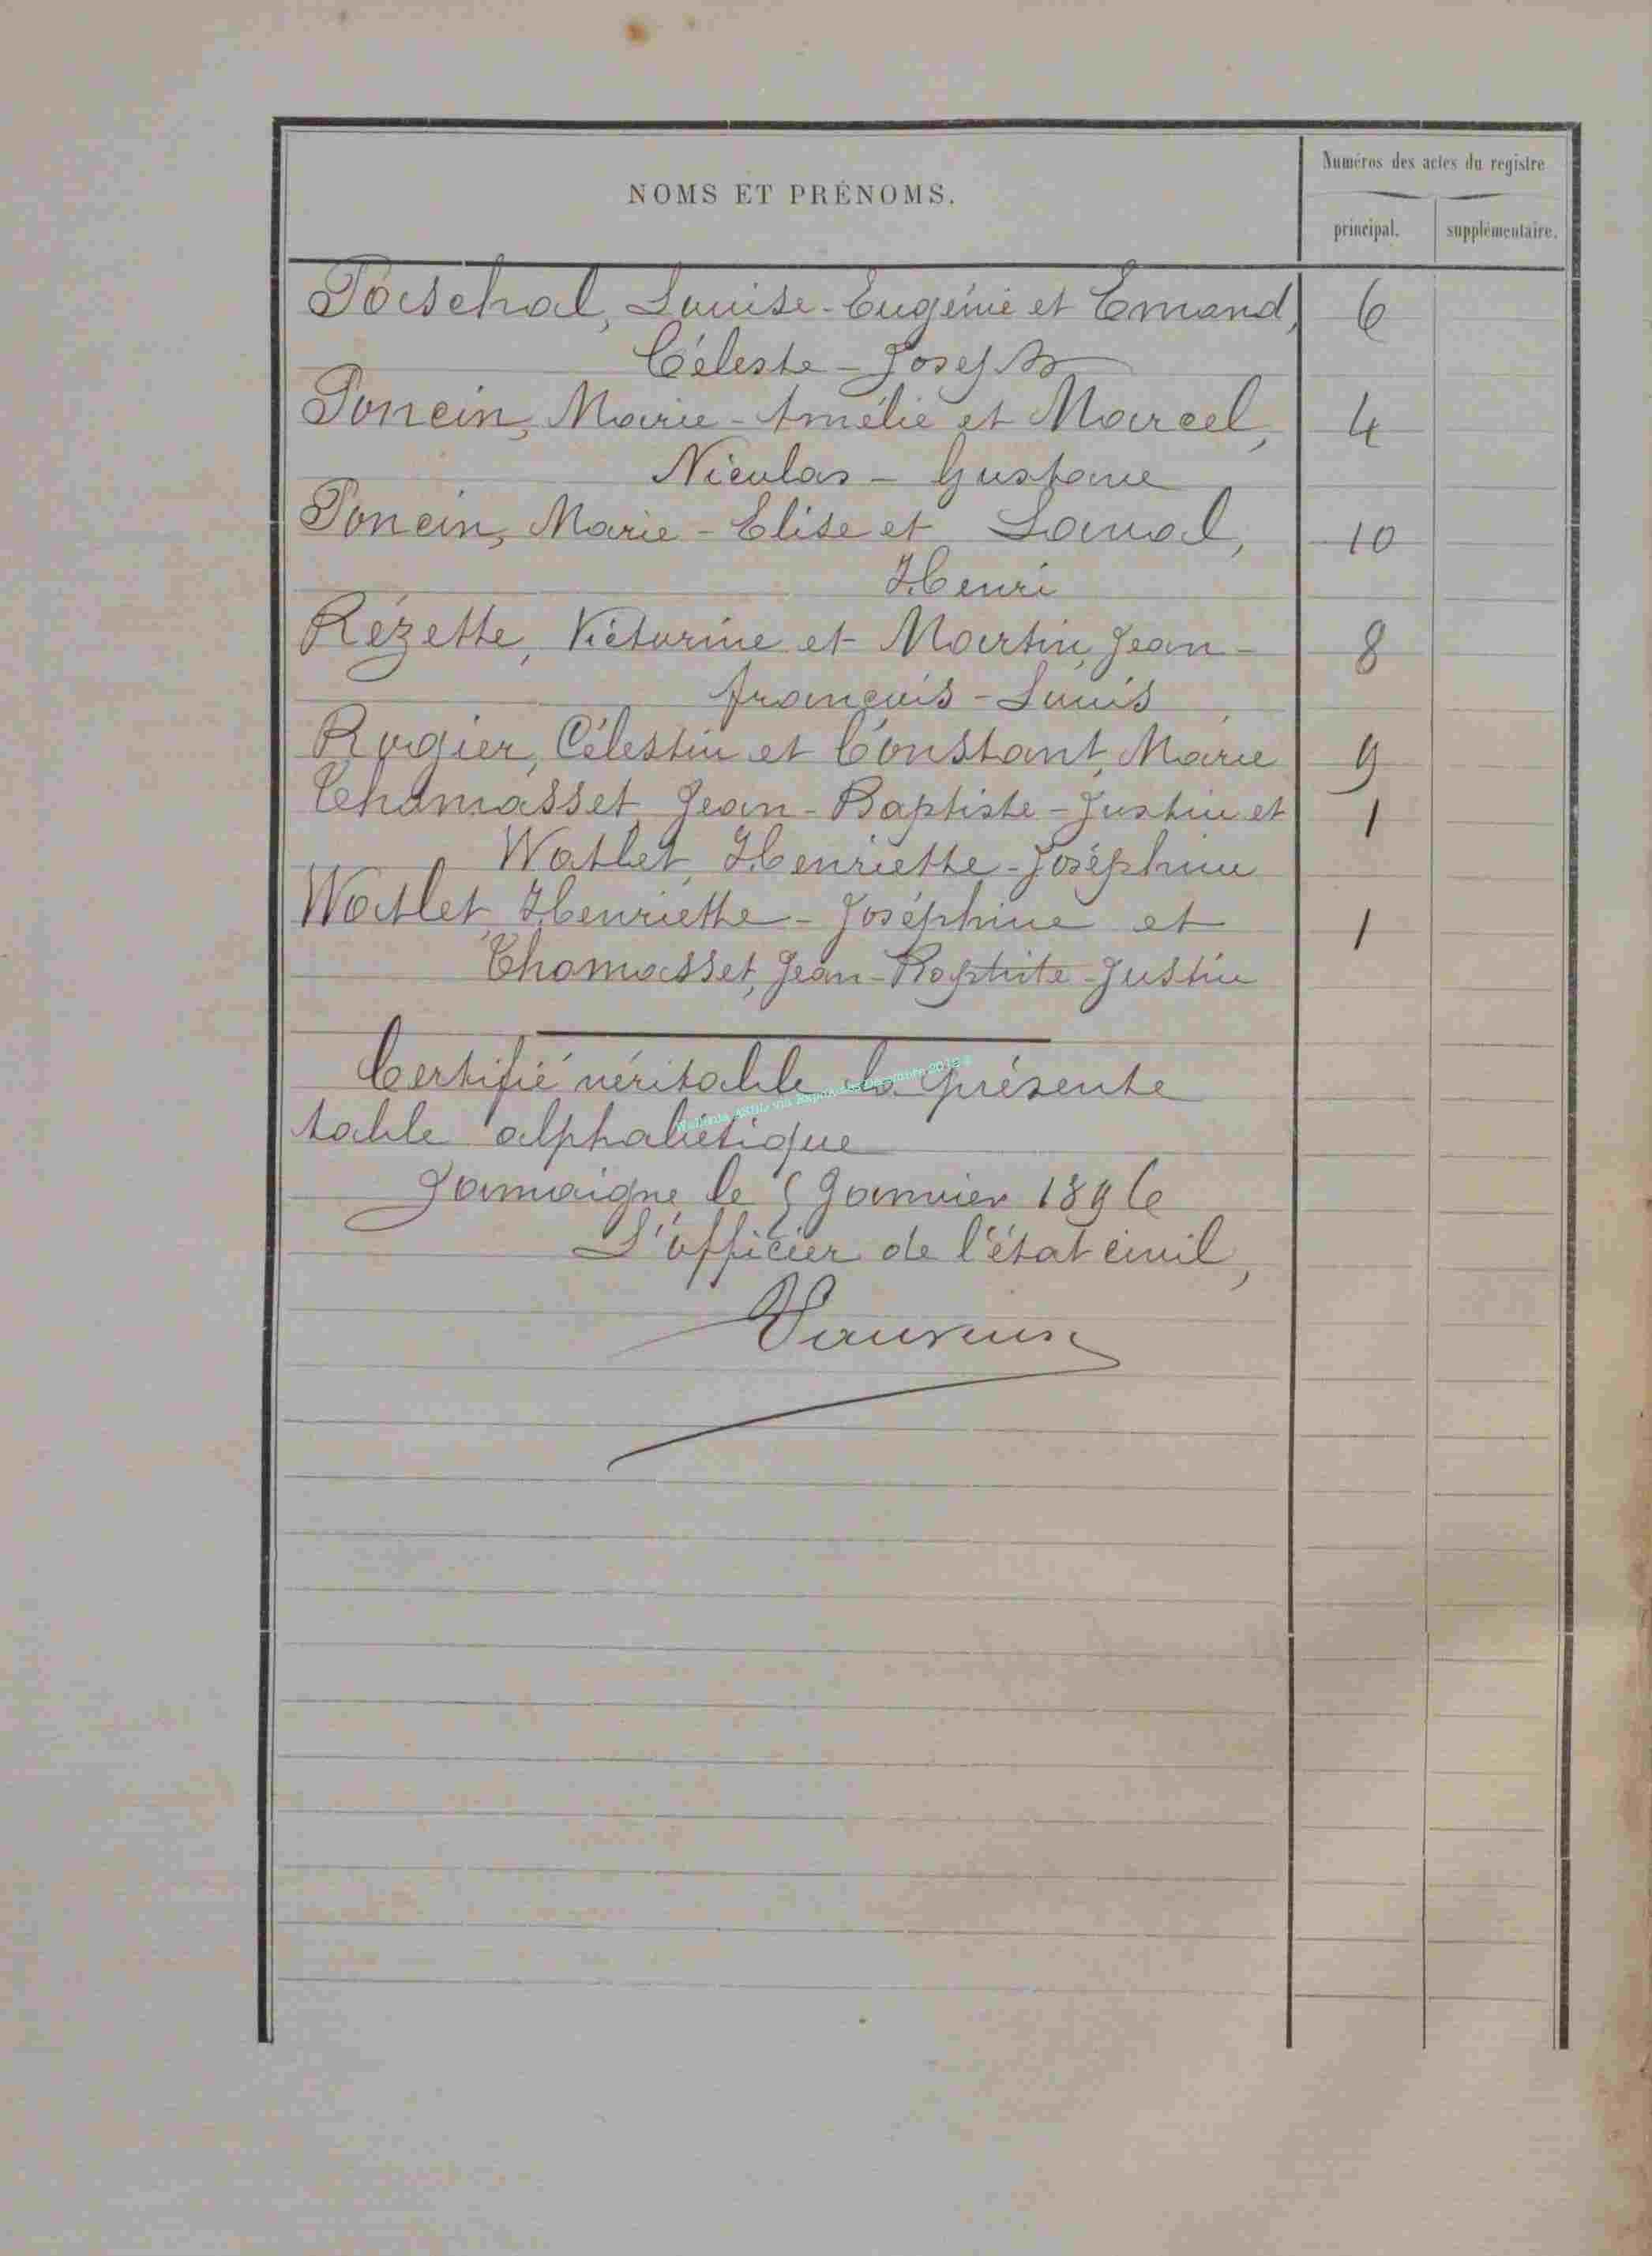 Numéros des actes du registre
NOMS ET PRÉNOMS.
principal. supplémentaire.
Paschal, Louise-Eugénie et Emand, 6
Céleste-Joseph
Poncin, Marie-Amélie et Marcel, 4
Nicolas-Gustave
Poncin, Marie-Elise et Laval, 10
Henri
Rézette, Victorine et Martin, Jean- 8
françois-Louis
Rogier, Célestin et Constant, Marie 9
Thomasset, Jean-Baptiste-Justin et 1
Watlet, Henriette-Joséphine
Watlet, Henriette-Joséphine et 1
Thomasset, Jean-Baptiste-Justin
Certifié véritable la présente
table alphabétique
Jamoigne, le 5 Janvier 1896
L'officier de l'état civil,